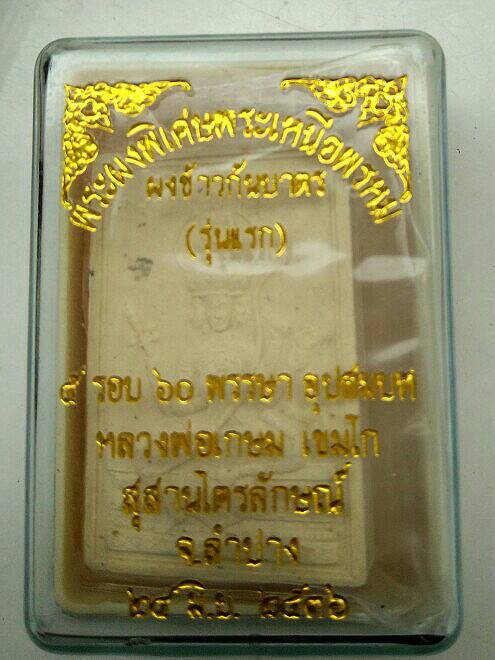 พระผงพิเศษพระเหนือพรหม
ผงข้าวก้นบาตร
(รุ่นแรก)
๕ รอบ ๖๐ พรรษา อุปสมบท
หลวงพ่อเกษม เขมโก
สุสานไตรลักษณ์
จ.ลำปาง
๒๕ มิ.ย. ๒๕๓๖